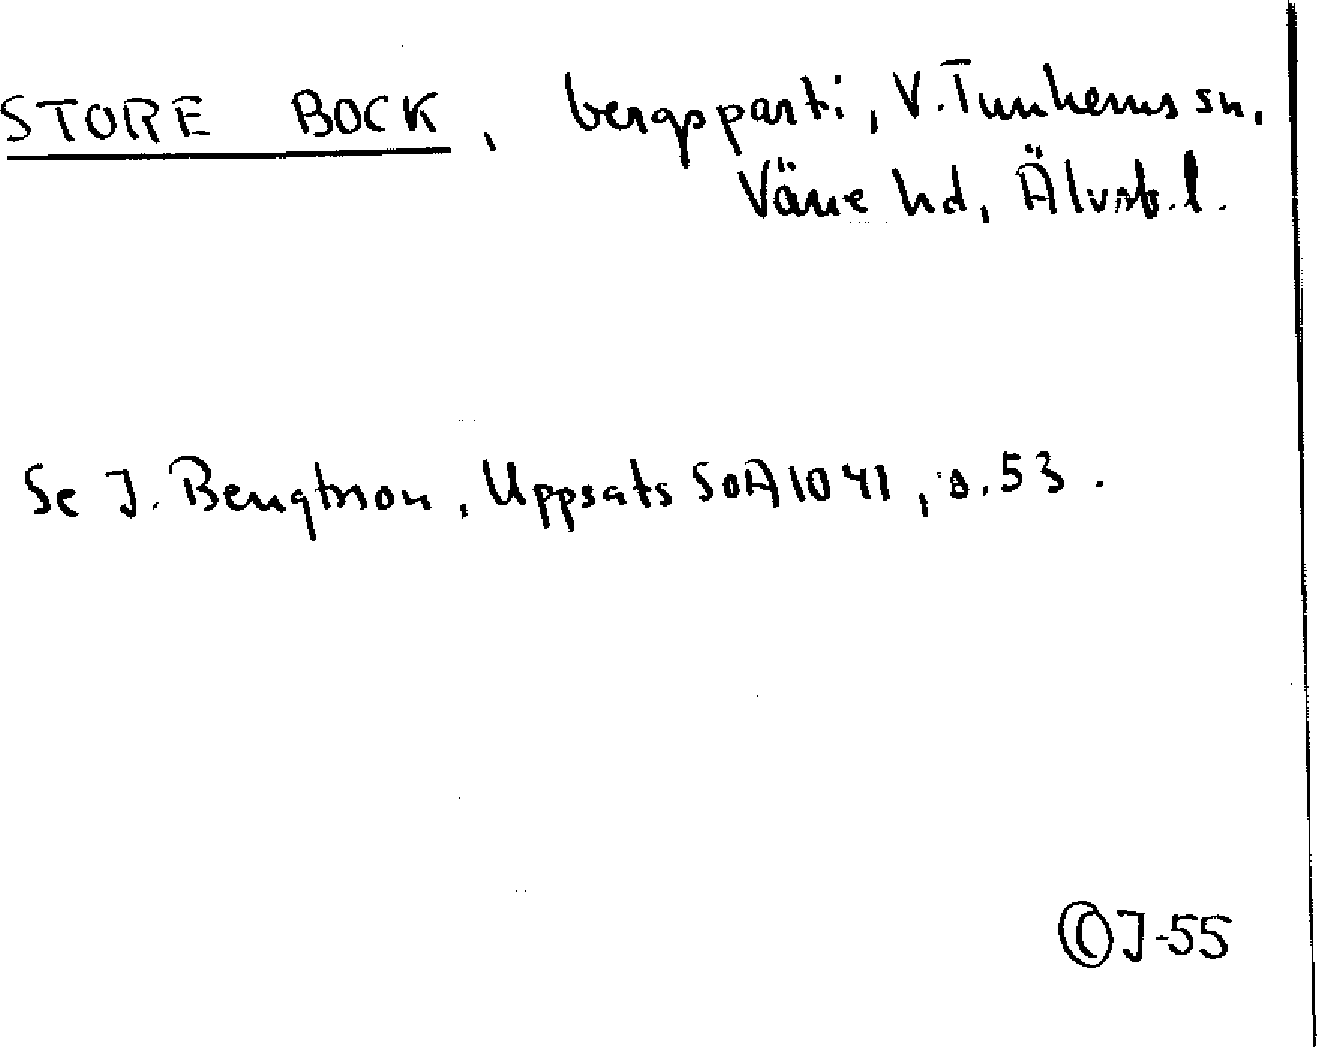 STORE BOCK, bergsparti, V. Tunhems sn,
Väne hd, Älvsb. l.
Se J. Bengtsson, Uppsats SOA 1041, s. 53.
©J-55